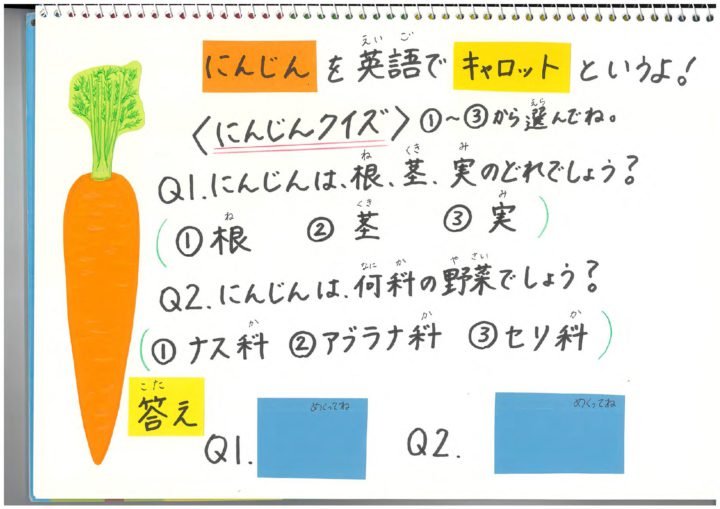 にんじんを英語でキャロットというよ!
えいご
〈にんじんクイズ〉①~③から選んでね。
えら
Q1.にんじんは、根、茎、実のどれでしょう?
ね くき み
(①根 ②茎 ③実)
ね くき み
Q2.にんじんは、何科の野菜でしょう?
なに か や さい
(①ナス科 ②アブラナ科 ③セリ科)
か か か
答え
こた
Q1. めくってね Q2. めくってね